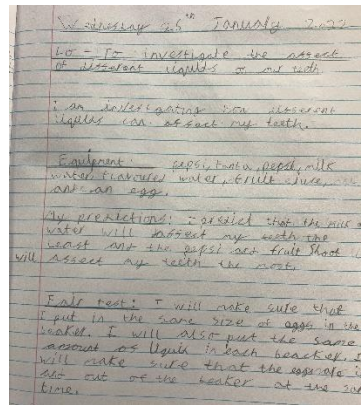 Wednesday 25th January 2022
Lo - To investigate the affect
of different liquids on my teeth
I am investigating how different
liquids can affect my teeth.
Equipment: pepsi, fanta, pepsi, milk
water, flavoured water, fruit
and an egg.
My predictions: I predict that the milk
water will affect my teeth the
least and the pepsi and fruit shoot
will affect my teeth the most.
Fair test: I will make sure that
I put in the same size of eggs in the
beaker. I will also put the same
amount of liquid in each beacker. I
will make sure that the eggs
and out of the beaker at the
time.